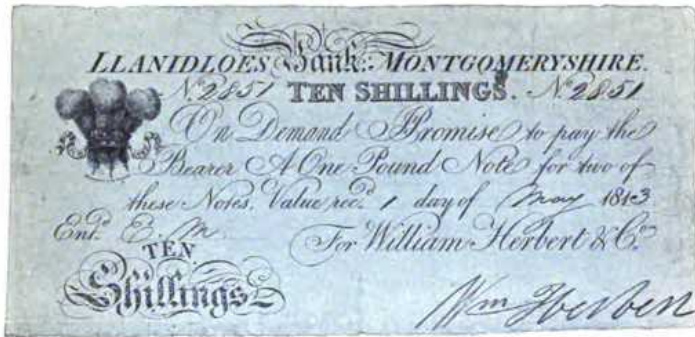 LLANIDLOES Bank. MONTGOMERYSHIRE.
No. 2851 TEN SHILLINGS. No. 2851
On Demand I Promise to pay the
Bearer A One Pound Note for two of
these Notes. Value recd. 1 day of May 1813
Entd. E. M.
For William Herbert & Co.
TEN
Shillings
Wm Herbert